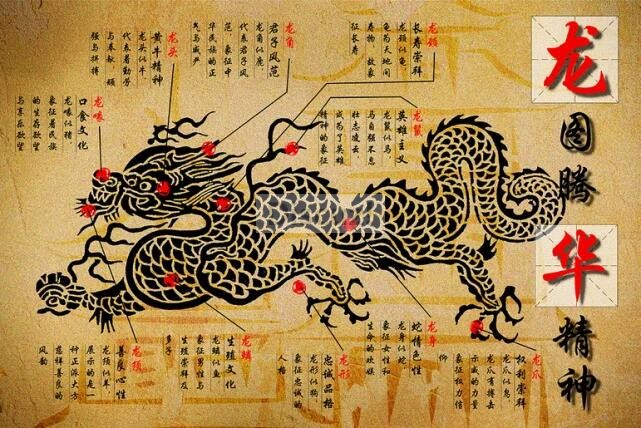 龙图腾
华精神
龙颈
长寿崇拜
龙颈似龟
龟为天地间
寿物 故象
征长寿
龙鬃
英雄主义
龙鬃似马
马自强不息
壮志凌云,
成为了英雄
精神的象征
龙角
君子风范
龙角似鹿,
代表君子风
范,象征中
华民族的正
气与威严
龙头
黄牛精神
龙头似牛,
代表着勤劳
与奉献 顽
强与拼搏
龙喙
口食文化
龙喙似猪
象征着民族
的生存欲望
与享乐欲望
龙爪
权利崇拜
龙爪有搏击
示威的力量
象征权力信
仰
龙身
蛇情色性
龙身似蛇,
象征女性和
生命的欢娱
龙形
忠诚品格
龙形似狗,
象征忠诚的
人格
龙鳞
生殖文化
龙鳞似鱼
象征男性与
生殖崇拜及
多子
龙须
善良心性
龙须似羊,
展示的是一
种正派大方
慈祥善良的
风韵